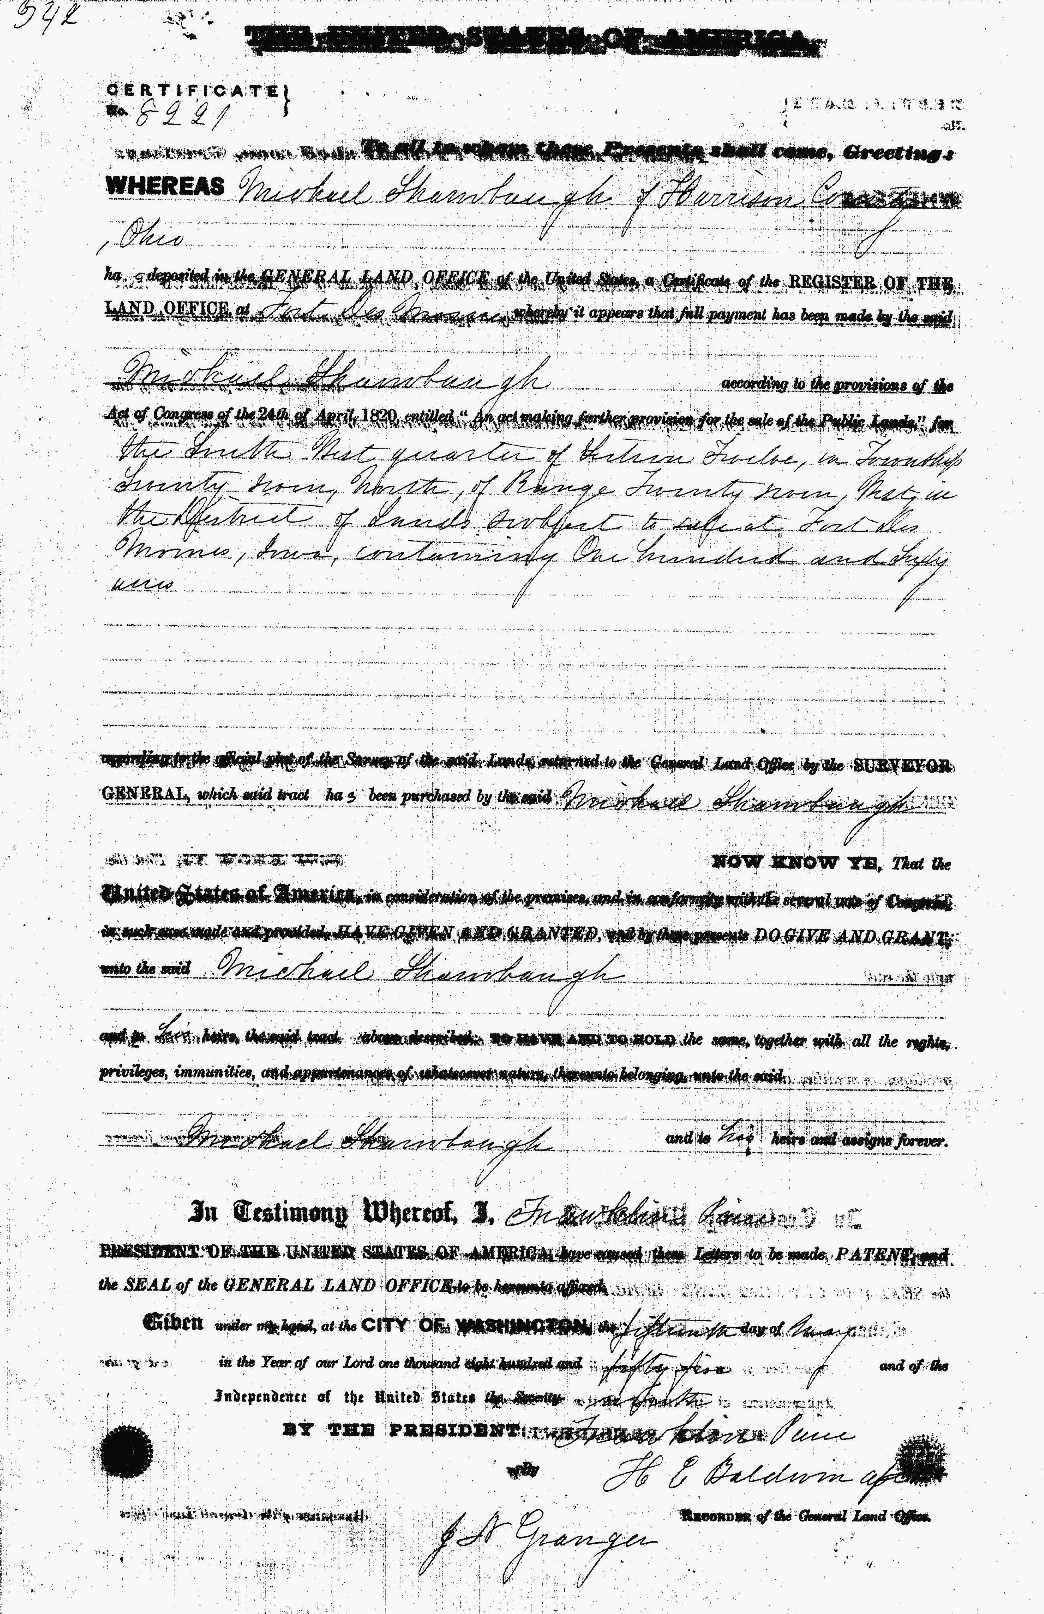 342
THE UNITED STATES OF AMERICA,
CERTIFICATE
No. 8221
To all to whom these Presents shall come, Greeting:
WHEREAS Michael Shambaugh of Harrison County
, Ohio
has deposited in the GENERAL LAND OFFICE of the United States, a Certificate of the REGISTER OF THE
LAND OFFICE at Fort Des Moines whereby it appears that full payment has been made by the said
Michael Shambaugh according to the provisions of the
Act of Congress of the 24th of April, 1820, entitled "An act making further provision for the sale of the Public Lands," for
the South West quarter of Section Twelve, in Township
Seventy seven, North, of Range Twenty seven, West, in
the District of Lands subject to sale at Fort Des
Moines, Iowa, containing One hundred and Sixty
acres
according to the official plat of the Survey of the said Lands, returned to the General Land Office by the SURVEYOR
GENERAL, which said tract has been purchased by the said Michael Shambaugh
NOW KNOW YE, That the
United States of America, in consideration of the premises, and in conformity with the several acts of Congress,
in such case made and provided, HAVE GIVEN AND GRANTED, and by these presents DO GIVE AND GRANT,
unto the said Michael Shambaugh
and to his heirs, the said tract above described: TO HAVE AND TO HOLD the same, together with all the rights,
privileges, immunities, and appurtenances of whatsoever nature, thereunto belonging, unto the said
Michael Shambaugh and to his heirs and assigns forever.
In Testimony Whereof, I, Franklin Pierce
PRESIDENT OF THE UNITED STATES OF AMERICA, have caused these Letters to be made PATENT, and
the SEAL of the GENERAL LAND OFFICE to be hereunto affixed.
Given under my hand, at the CITY OF WASHINGTON, the fifteenth day of May
in the Year of our Lord one thousand eight hundred and fifty five and of the
Independence of the United States the Seventy
BY THE PRESIDENT: Franklin Pierce
By H E Baldwin
J N Granger RECORDER of the General Land Office.